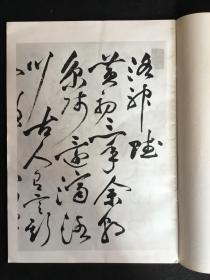 洛神賦
黄初三年余朝
京師還濟洛
川古人有言斯